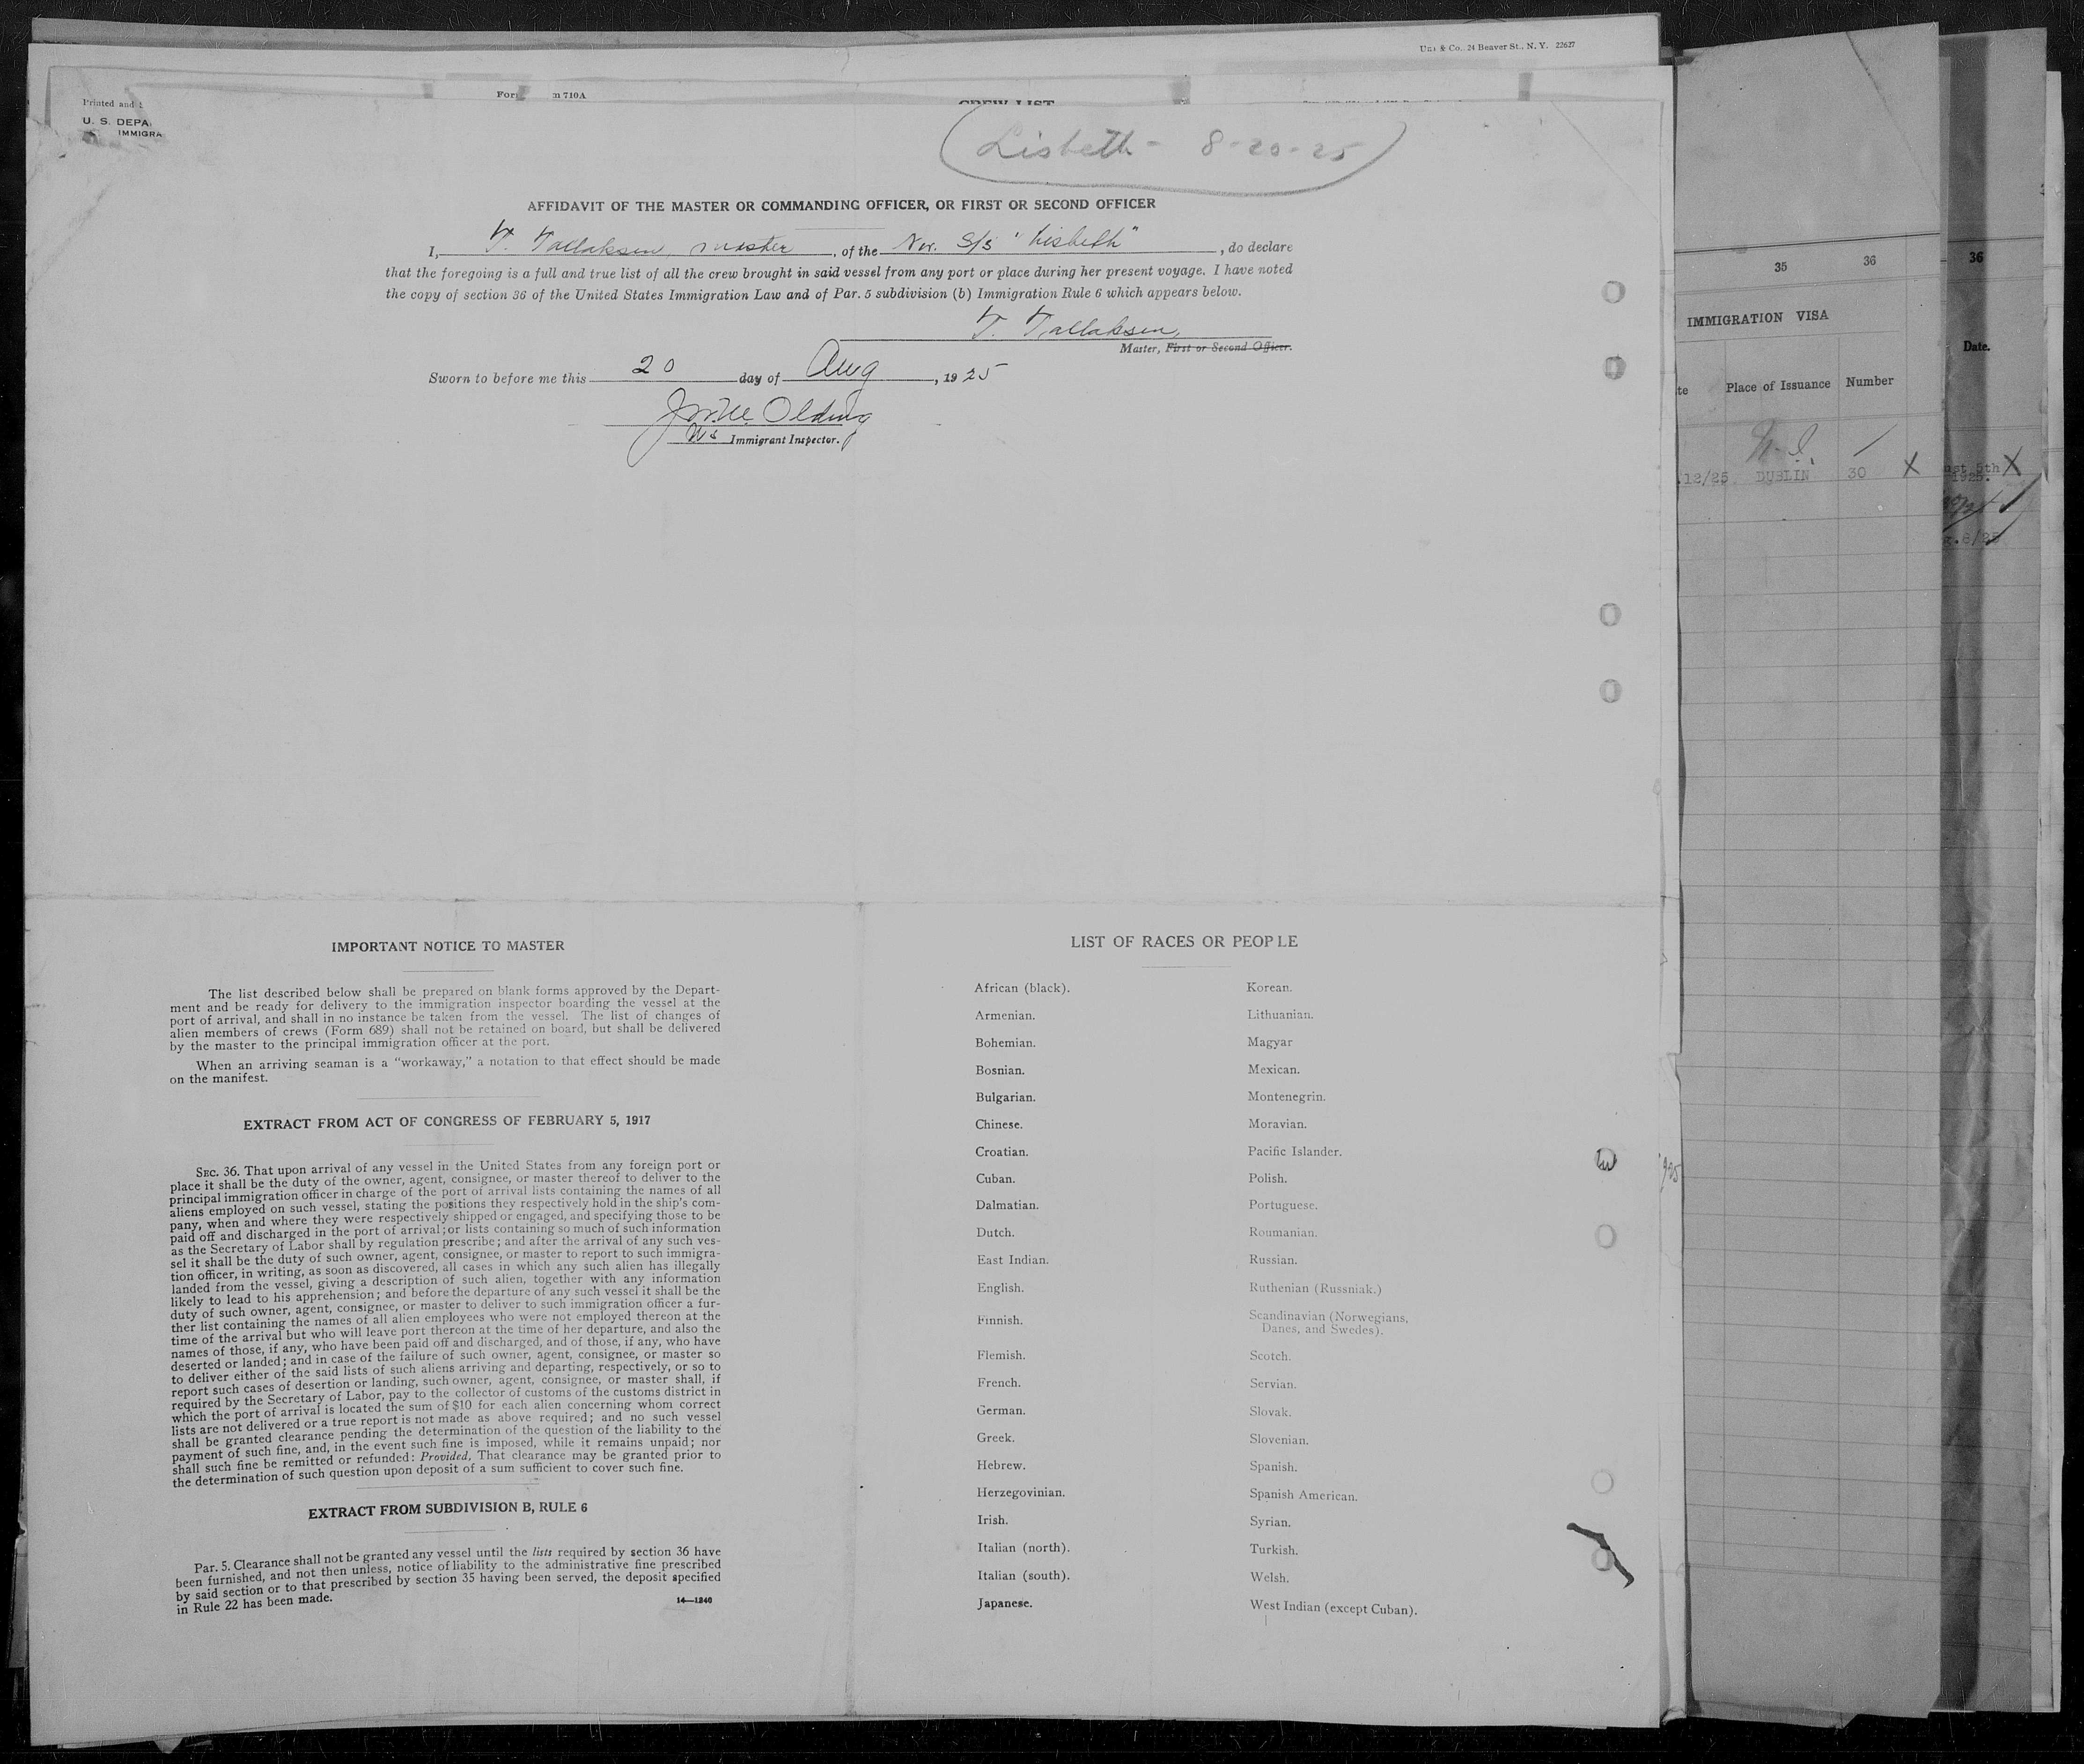 Co., 24 Beaver St., N. Y. 22627
Printed and
m 710A
CREW LIST
U. S. DEPA
IMMIGRA
Lisbeth - 8-20-25
AFFIDAVIT OF THE MASTER OR COMMANDING OFFICER, OR FIRST OR SECOND OFFICER
I, T. Tallaksen, master, of the Nor. S/S "Lisbeth", do declare
that the foregoing is a full and true list of all the crew brought in said vessel from any port or place during her present voyage. I have noted
the copy of section 36 of the United States Immigration Law and of Par. 5 subdivision (b) Immigration Rule 6 which appears below.
T. Tallaksen,
Master, First or Second Officer.
Sworn to before me this 20 day of Aug, 1925
Olding
US Immigrant Inspector.
35 36
IMMIGRATION VISA
te Place of Issuance Number
12/25 DUBLIN 30 X
36
Date.
ust 5th X
1925.
g.8/25
IMPORTANT NOTICE TO MASTER
The list described below shall be prepared on blank forms approved by the Depart-
ment and be ready for delivery to the immigration inspector boarding the vessel at the
port of arrival, and shall in no instance be taken from the vessel. The list of changes of
alien members of crews (Form 689) shall not be retained on board, but shall be delivered
by the master to the principal immigration officer at the port.
When an arriving seaman is a "workaway," a notation to that effect should be made
on the manifest.
EXTRACT FROM ACT OF CONGRESS OF FEBRUARY 5, 1917
SEC. 36. That upon arrival of any vessel in the United States from any foreign port or
place it shall be the duty of the owner, agent, consignee, or master thereof to deliver to the
principal immigration officer in charge of the port of arrival lists containing the names of all
aliens employed on such vessel, stating the positions they respectively hold in the ship's com-
pany, when and where they were respectively shipped or engaged, and specifying those to be
paid off and discharged in the port of arrival; or lists containing so much of such information
as the Secretary of Labor shall by regulation prescribe; and after the arrival of any such ves-
sel it shall be the duty of such owner, agent, consignee, or master to report to such immigra-
tion officer, in writing, as soon as discovered, all cases in which any such alien has illegally
landed from the vessel, giving a description of such alien, together with any information
likely to lead to his apprehension; and before the departure of any such vessel it shall be the
duty of such owner, agent, consignee, or master to deliver to such immigration officer a fur-
ther list containing the names of all alien employees who were not employed thereon at the
time of the arrival but who will leave port thereon at the time of her departure, and also the
names of those, if any, who have been paid off and discharged, and of those, if any, who have
deserted or landed; and in case of the failure of such owner, agent, consignee, or master so
to deliver either of the said lists of such aliens arriving and departing, respectively, or so to
report such cases of desertion or landing, such owner, agent, consignee, or master shall, if
required by the Secretary of Labor, pay to the collector of customs of the customs district in
which the port of arrival is located the sum of $10 for each alien concerning whom correct
lists are not delivered or a true report is not made as above required; and no such vessel
shall be granted clearance pending the determination of the question of the liability to the
payment of such fine, and, in the event such fine is imposed, while it remains unpaid; nor
shall such fine be remitted or refunded: Provided, That clearance may be granted prior to
the determination of such question upon deposit of a sum sufficient to cover such fine.
EXTRACT FROM SUBDIVISION B, RULE 6
Par. 5. Clearance shall not be granted any vessel until the lists required by section 36 have
been furnished, and not then unless, notice of liability to the administrative fine prescribed
by said section or to that prescribed by section 35 having been served, the deposit specified
in Rule 22 has been made.
14—1240
LIST OF RACES OR PEOPLE
African (black). Korean.
Armenian. Lithuanian.
Bohemian. Magyar
Bosnian. Mexican.
Bulgarian. Montenegrin.
Chinese. Moravian.
Croatian. Pacific Islander.
Cuban. Polish.
Dalmatian. Portuguese.
Dutch. Roumanian.
East Indian. Russian.
English. Ruthenian (Russniak.)
Finnish. Scandinavian (Norwegians,
Danes, and Swedes).
Flemish. Scotch.
French. Servian.
German. Slovak.
Greek. Slovenian.
Hebrew. Spanish.
Herzegovinian. Spanish American.
Irish. Syrian.
Italian (north). Turkish.
Italian (south). Welsh.
Japanese. West Indian (except Cuban).